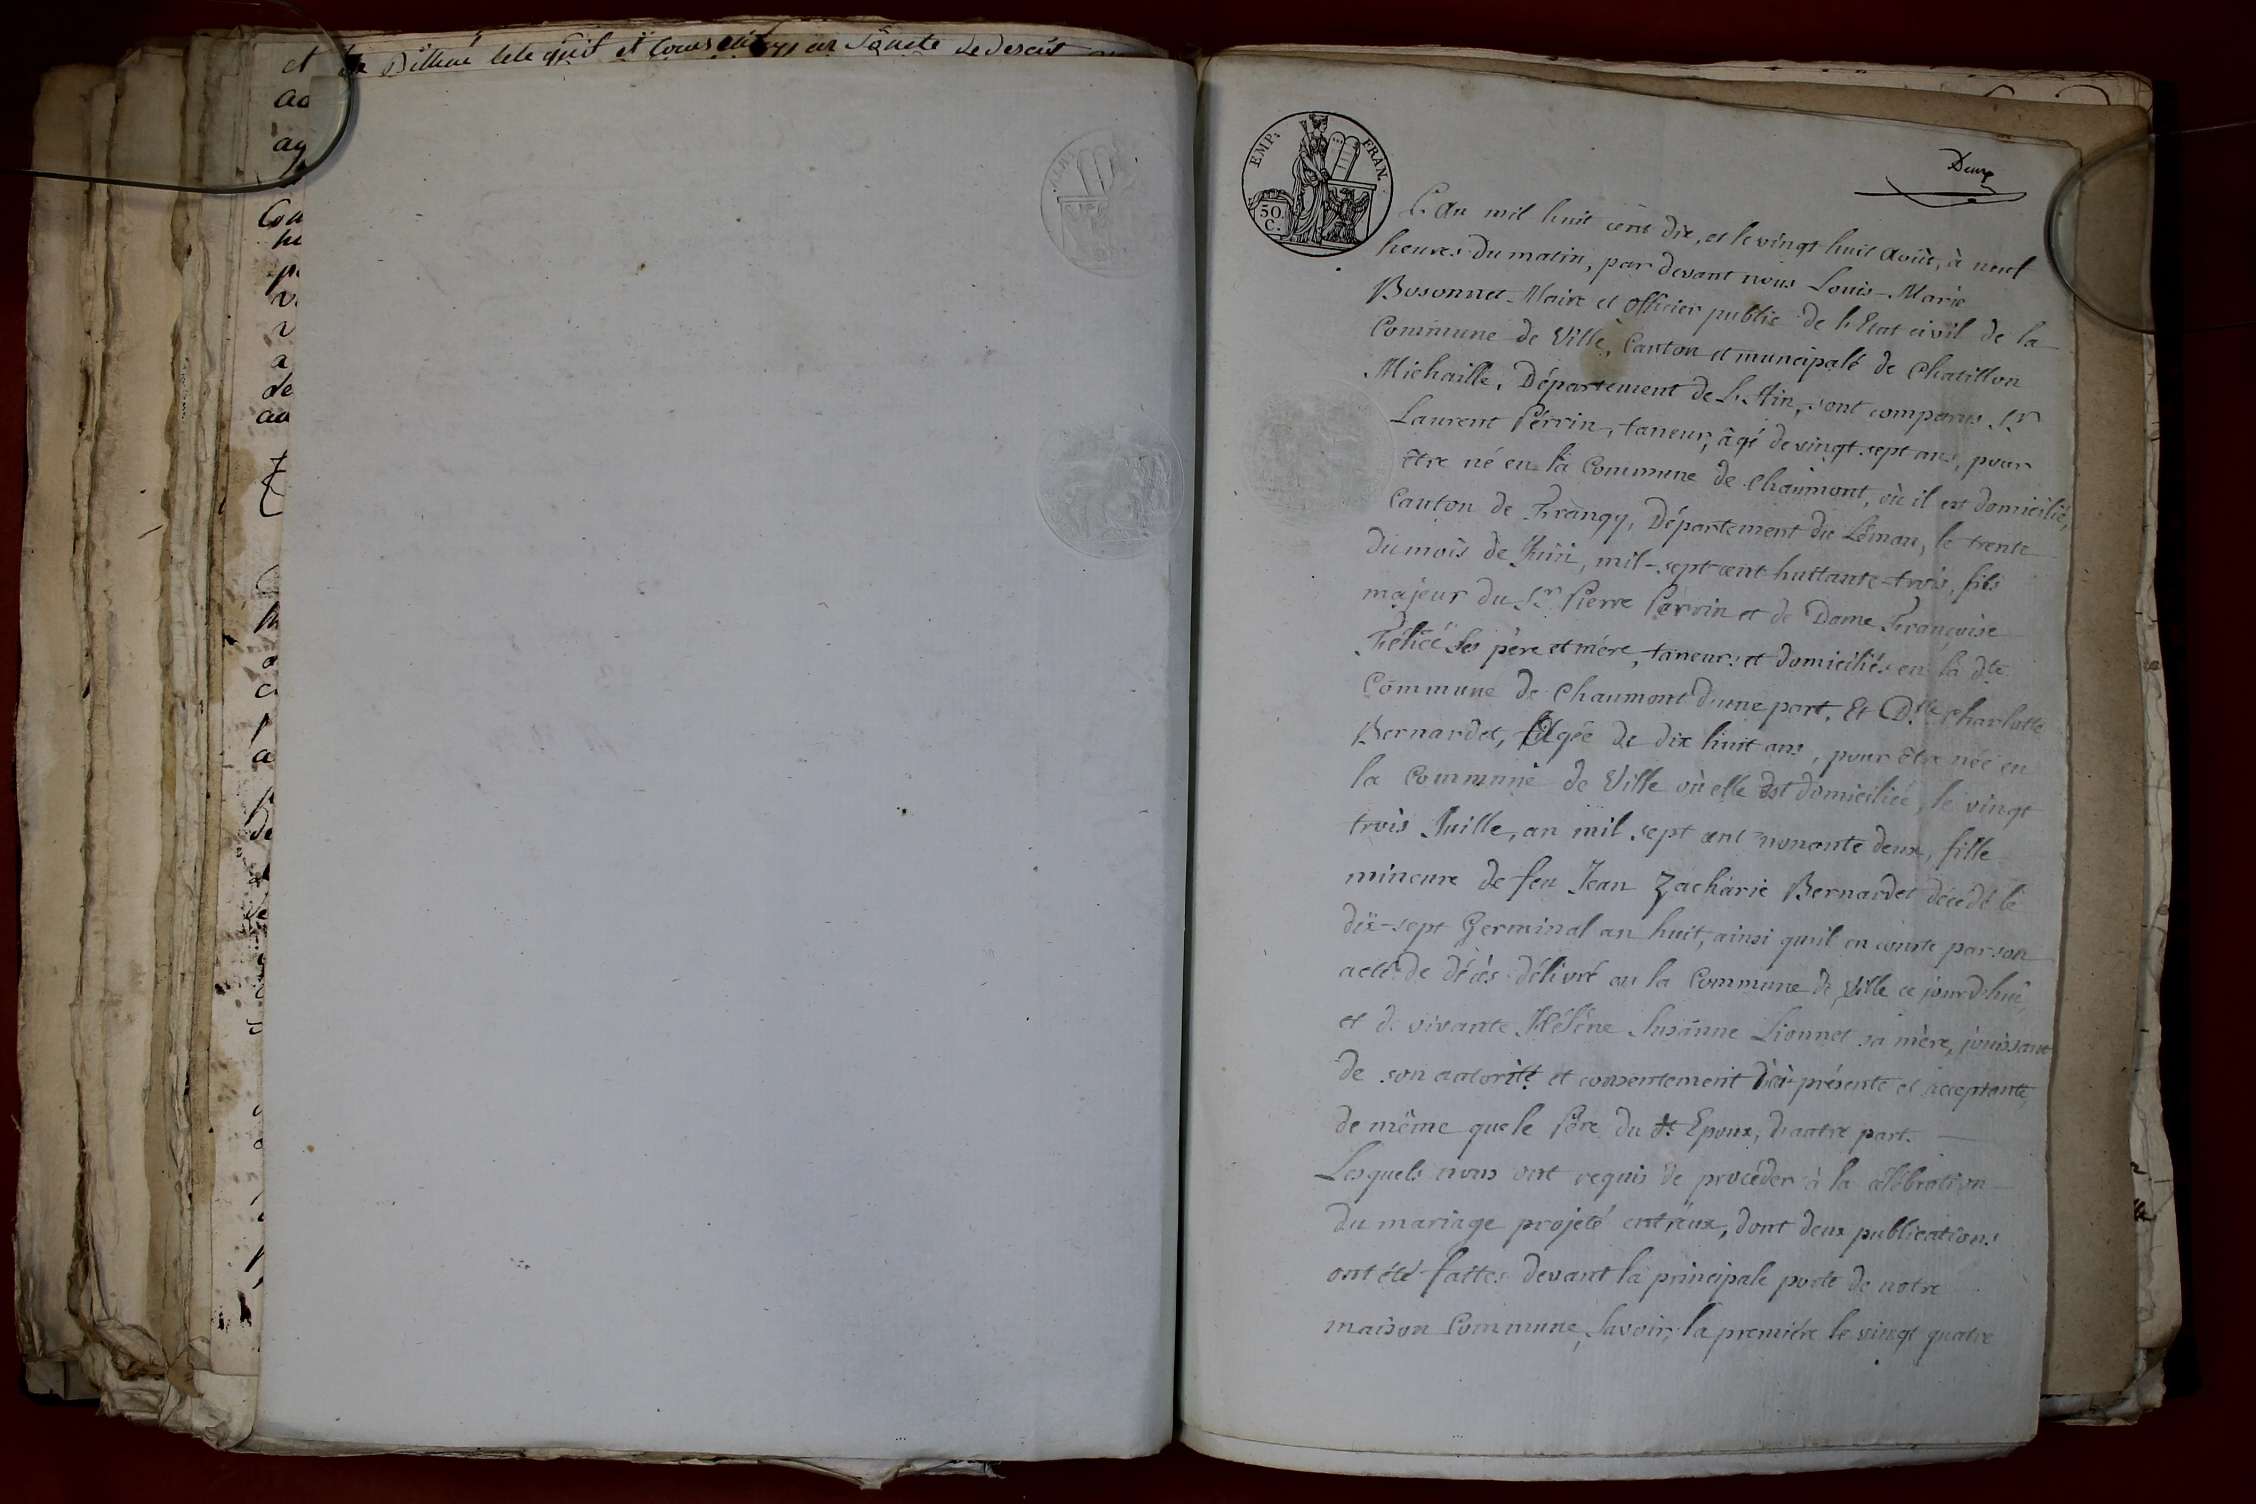 et
EMP: FRAN.
50.
C.
Deux
L'an mil huit cent dix, et le vingt huit Août, à neuf
heures du matin, par devant nous Louis-Marie
Bosonnet Maire et officier public de l'Etat civil de la
Commune de Ville, Canton et muncipalé de Chatillon
Michaille, Département de L'Ain, sont comparus Sr.
Laurent Pérrin, taneur, âgé de vingt sept ans, pour
être né en la Commune de Chaumont, où il est domicilié,
Canton de Frangy, Département du Léman, le trente
du mois de Juin, mil-sept cent huttante-trois, fils
majeur du Sr. Pierre Perrin et de Dame Françoise
Félicé ses père et mère, taneurs et domiciliés en la dte.
Commune de Chaumont d'une part, Et Dlle. Charlotte
Bernardet, Agée de dix huit ans, pour être née en
la Commune de Ville où elle est domiciliée, le vingt
trois Juille, an mil sept cent nonante deux, fille
mineure de feu Jean Zacharie Bernardet décédé le
dix-sept Germinal an huit, ainsi qu'il en conste par son
acte de décès délivré en la Commune de Ville ce jourd'hui,
et de vivante Hélène Susanne Lionnet sa mère, jouissant
de son autorité et consentement ici présente et acceptante,
de même que le Père du dt. Epoux, d'autre part.
Lesquels nous ont requis de procéder à la célébration
du mariage projeté entr'eux, dont deux publications
ont été faites devant la principale porte de notre
maison Commune, Savoir, la première le vingt quatre